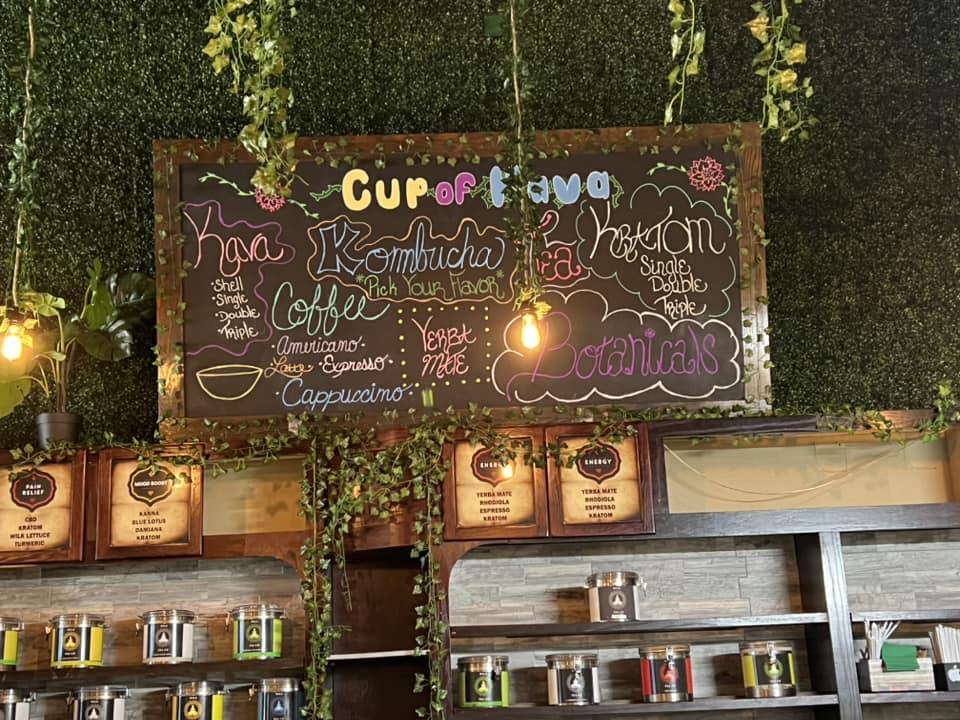 Cup of Kava
Kava
• Shell
• Single
• Double
• Triple
Kombucha
*Pick Your Flavor*
Coffee
• Americano •
Latte • Espresso
• Cappuccino •
YERBA
MATE
KRATOM
Single
Double
Triple
Botanicals
PAIN
RELIEF
CBD
KRATOM
WILK LETTUCE
TURMERIC
MOOD BOOST
KANNA
BLUE LOTUS
DAMIANA
KRATOM
ENERGY
YERBA MATE
RHODIOLA
ESPRESSO
KRATOM
ENERGY
YERBA MATE
RHODIOLA
ESPRESSO
KRATOM